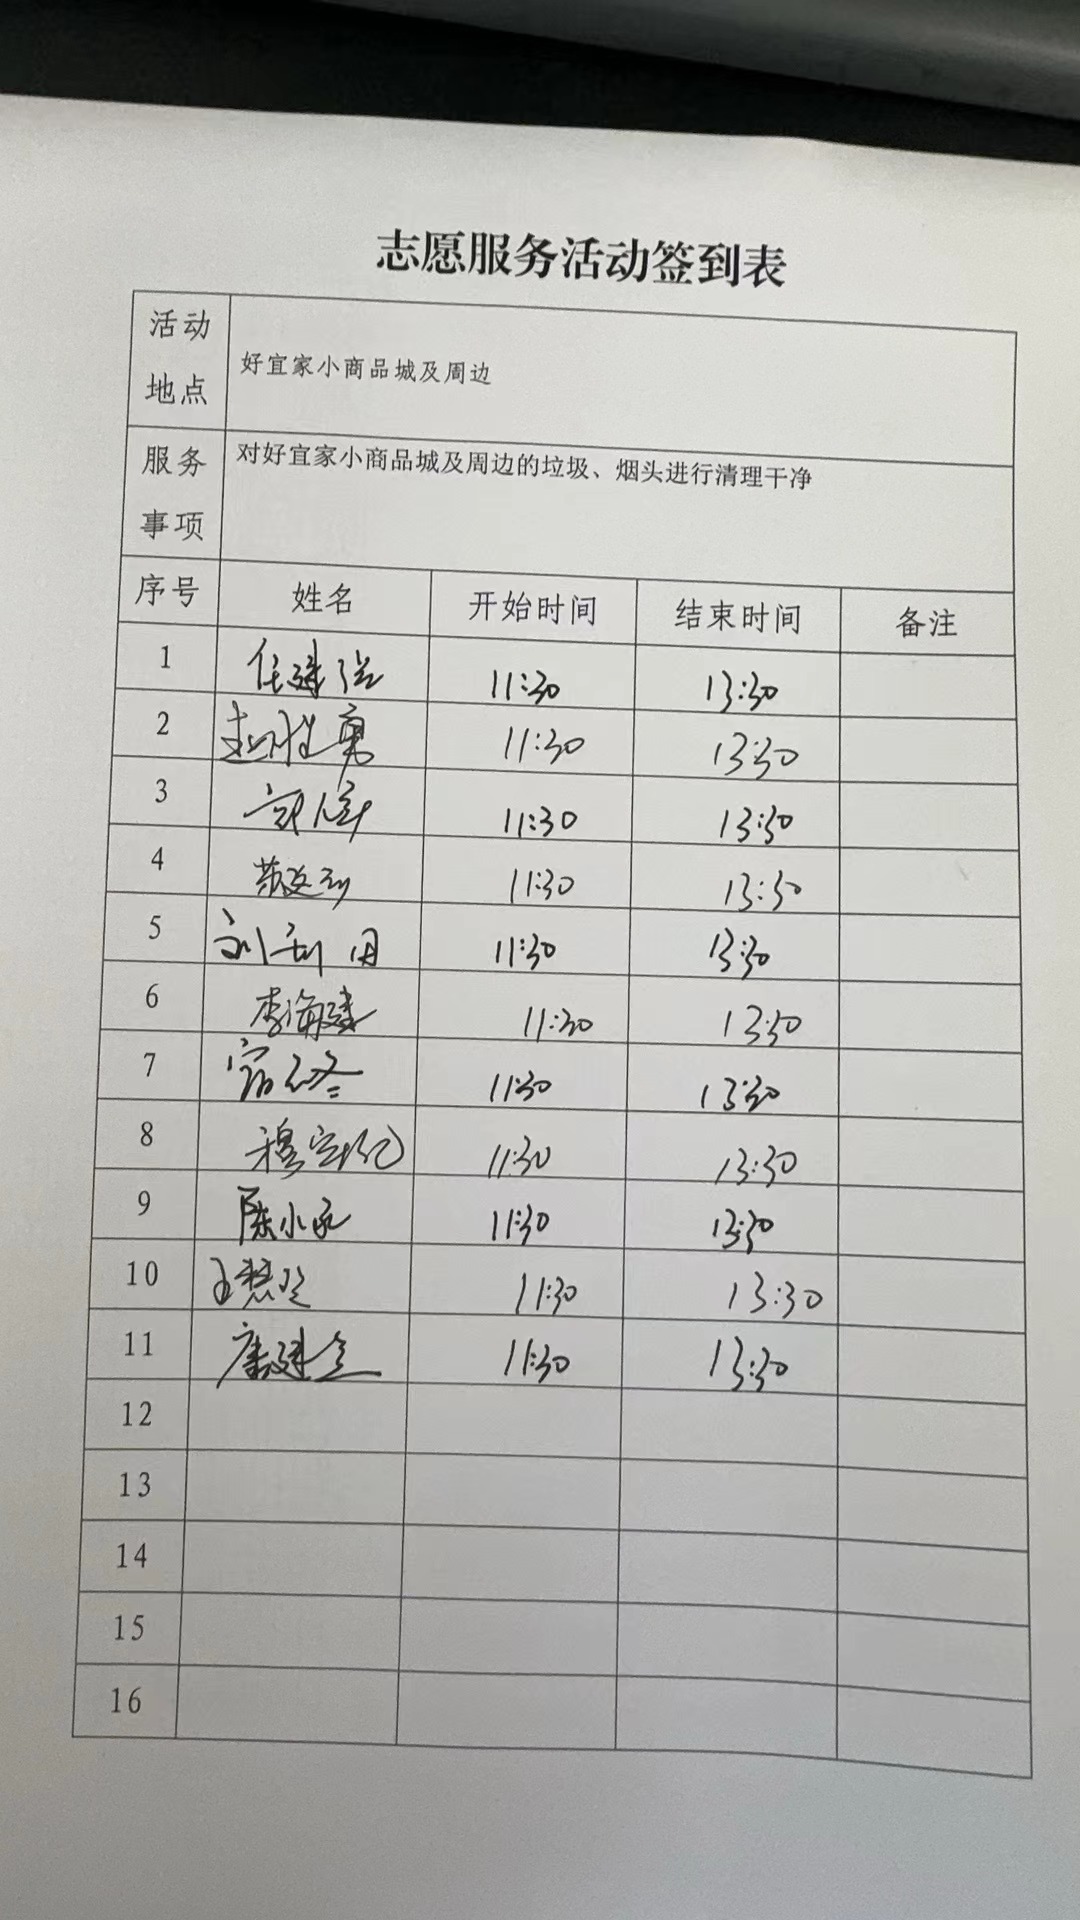 志愿服务活动签到表
活动地点 好宜家小商品城及周边
服务事项 对好宜家小商品城及周边的垃圾、烟头进行清理干净
序号 姓名 开始时间 结束时间 备注
1 任建强 11:30 13:30
2 赵胜勇 11:30 13:30
3 11:30 13:30
4 11:30 13:30
5 刘利国 11:30 13:30
6 李海建 11:30 13:30
7 11:30 13:30
8 穆 11:30 13:30
9 陈小永 11:30 13:30
10 王慧玲 11:30 13:30
11 康建立 11:30 13:30
12
13
14
15
16